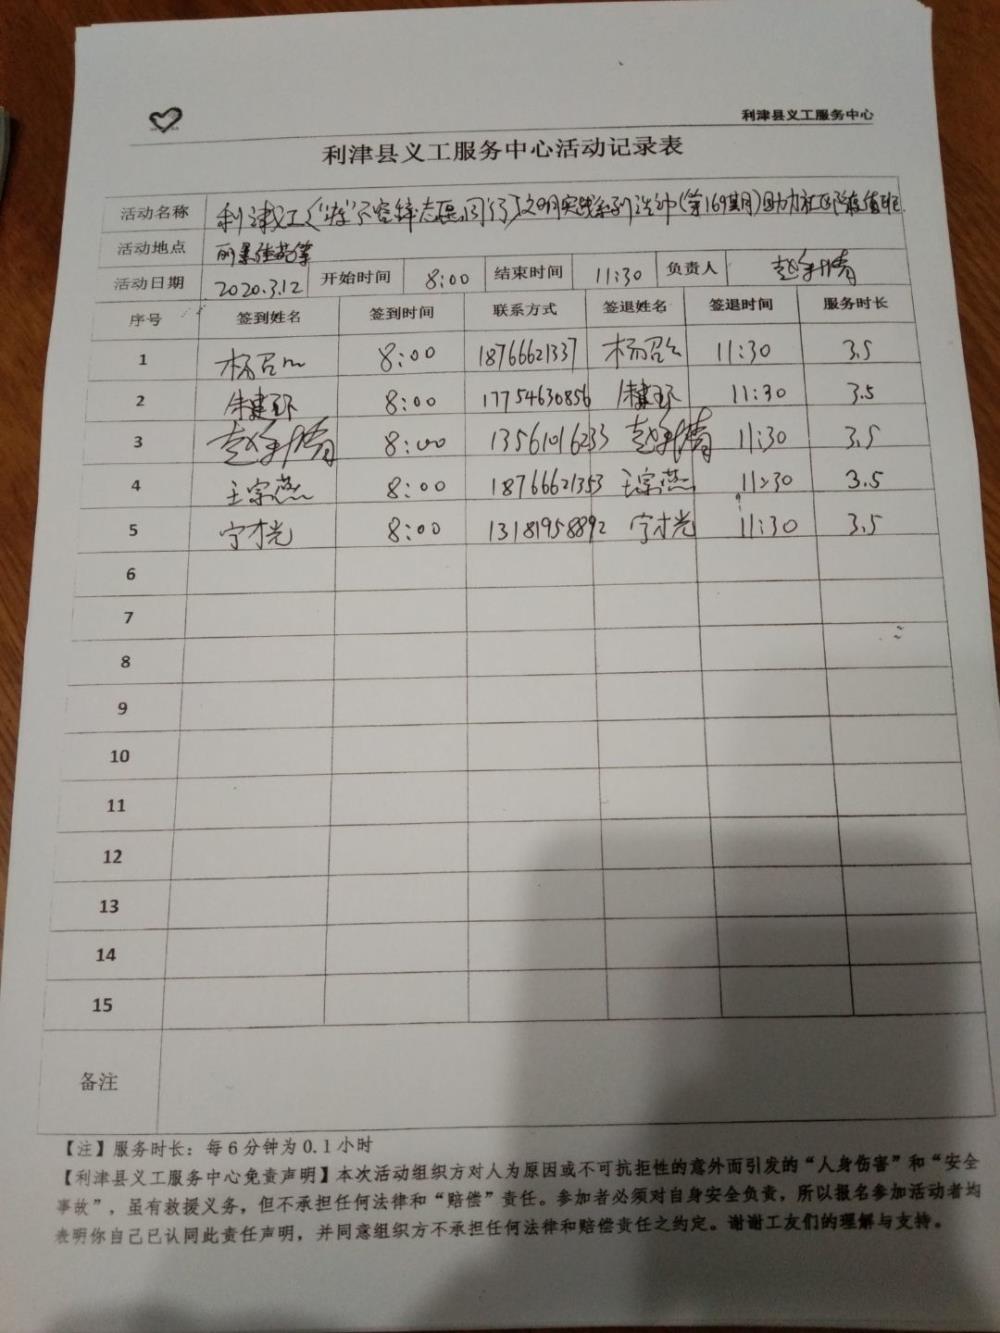 利津县义工服务中心
利津县义工服务中心活动记录表
活动名称 利津义工《"疫"不容辞志愿同行》文明实践系列活动(第169期)助力社区防疫值班
活动地点
活动日期 2020.3.12 开始时间 8:00 结束时间 11:30 负责人
序号 签到姓名 签到时间 联系方式 签退姓名 签退时间 服务时长
1 8:00 18766621337 11:30 3.5
2 朱建环 8:00 17754630856 朱建环 11:30 3.5
3 8:00 13561016233 11:30 3.5
4 王宗燕 8:00 18766621353 王宗燕 11:30 3.5
5 宁才光 8:00 13181958892 宁才光 11:30 3.5
6
7
8
9
10
11
12
13
14
15
备注
【注】服务时长：每6分钟为0.1小时
【利津县义工服务中心免责声明】本次活动组织方对人为原因或不可抗拒性的意外而引发的“人身伤害”和“安全
事故”，虽有救援义务，但不承担任何法律和“赔偿”责任。参加者必须对自身安全负责，所以报名参加活动者均
表明你自己已认同此责任声明，并同意组织方不承担任何法律和赔偿责任之约定。谢谢工友们的理解与支持。